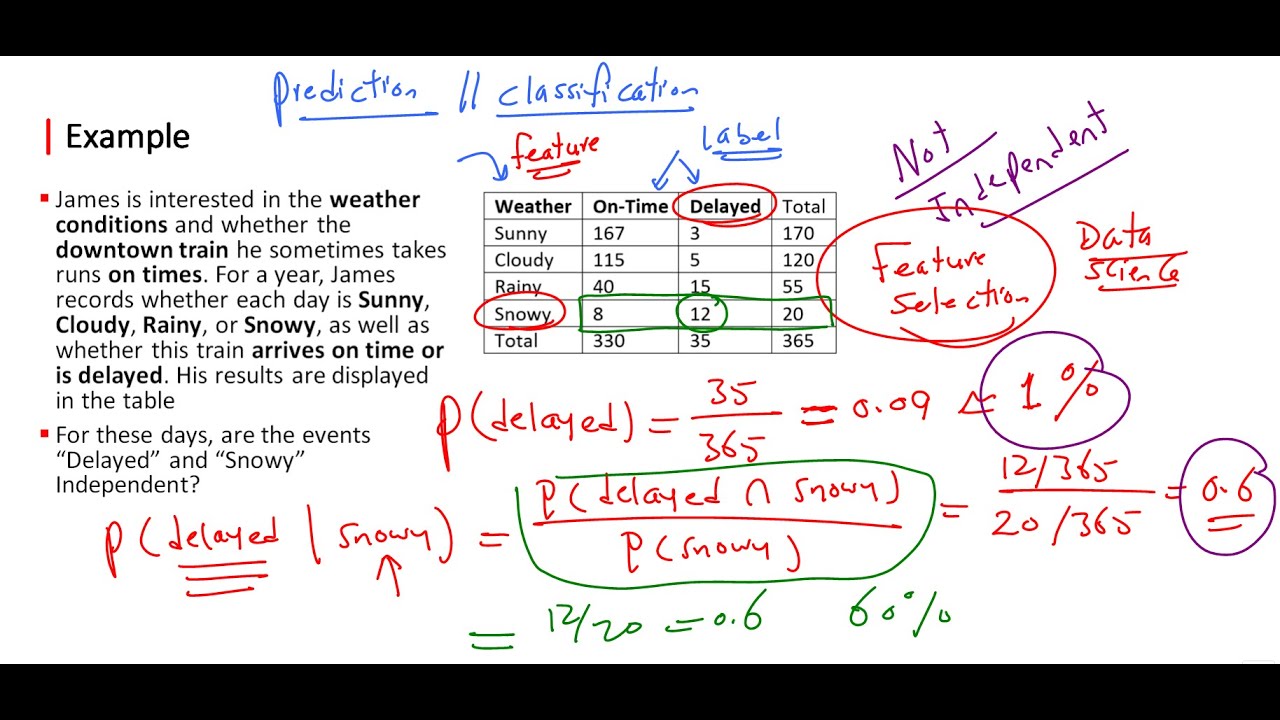 prediction // classification
Example
feature
label
Not
Independent
▪ James is interested in the weather
conditions and whether the
downtown train he sometimes takes
runs on times. For a year, James
records whether each day is Sunny,
Cloudy, Rainy, or Snowy, as well as
whether this train arrives on time or
is delayed. His results are displayed
in the table
▪ For these days, are the events
“Delayed” and “Snowy”
Independent?
Weather On-Time Delayed Total
Sunny 167 3 170
Cloudy 115 5 120
Rainy 40 15 55
Snowy 8 12 20
Total 330 35 365
Feature
Selection
Data
science
P(delayed) = 35/365 = 0.09 < 1%
P(delayed | snowy) = P(delayed ∩ snowy)/P(snowy) = 12/365 / 20/365 = 0.6
= 12/20 = 0.6 60%